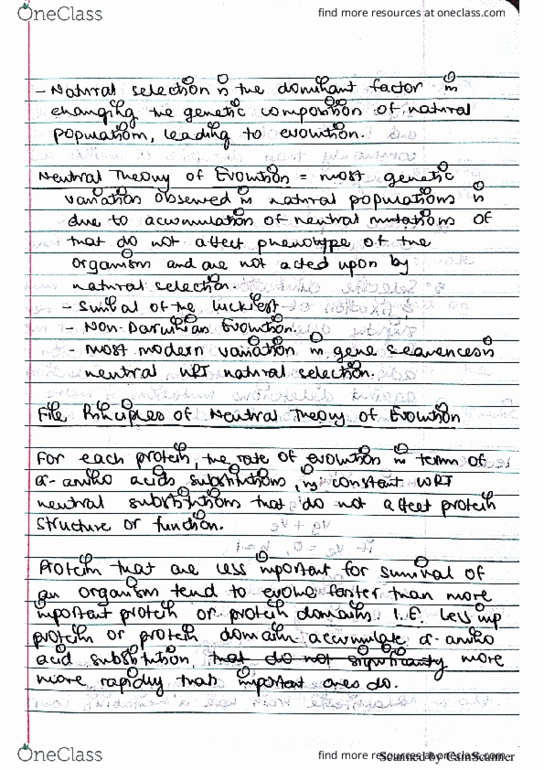 OneClass
find more resources at oneclass.com
- Natural selection is the dominant factor in
changing the genetic composition of natural
populations, leading to evolution.
Neutral Theory of Evolution = most genetic
variation observed in natural populations is
due to accumulation of neutral mutations of
that do not affect phenotype of the
organism and are not acted upon by
natural selection.
- Survival of the luckiest
- Non-Darwinian Evolution.
- most modern variation in gene sequences is
neutral WRT natural selection.
Five Principles of Neutral Theory of Evolution
For each protein, the rate of evolution in terms of
α-amino acids substitutions, is constant WRT
neutral substitutions that do not affect protein
structure or function.
Proteins that are less important for survival of
an organism tend to evolve faster than more
important protein or protein domains I.E. Less imp
protein or protein domains accumulate α-amino
acid substitution that do not significantly more
more rapidly than important ones do.
OneClass
find more resources at oneclass.com
Scanned by CamScanner